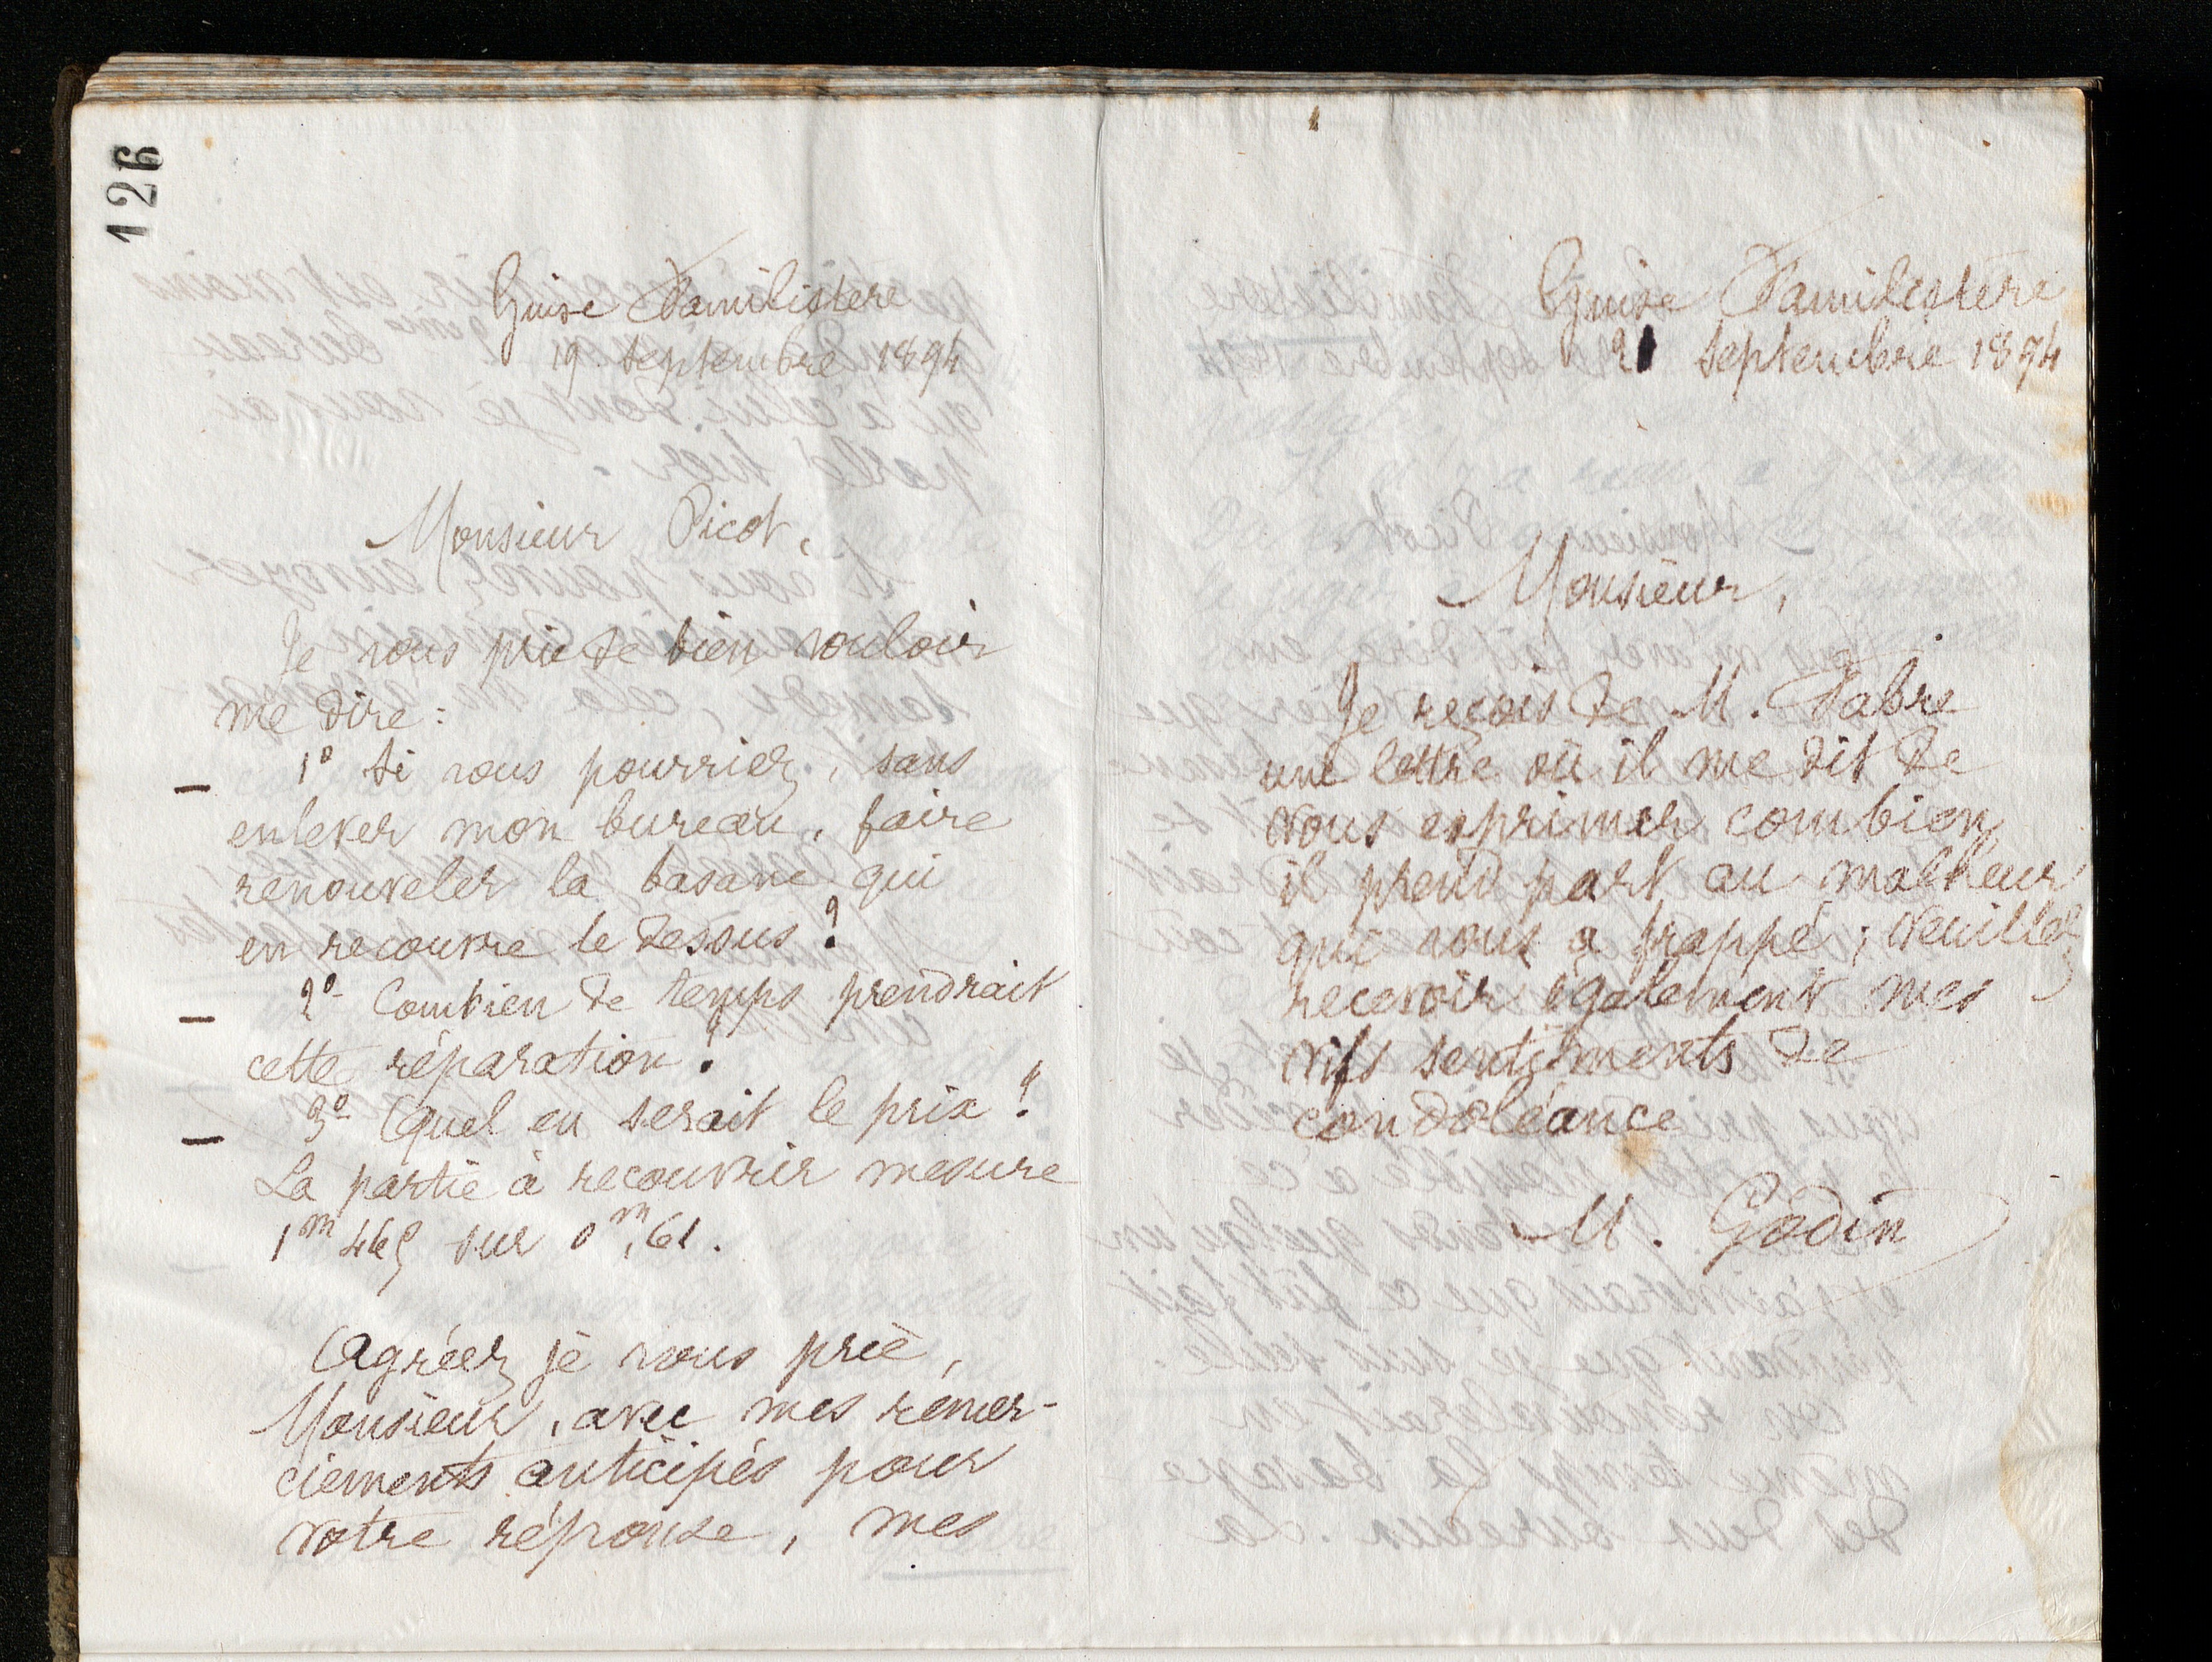 126
Guise Familistère
19 septembre 1894
Monsieur Picot,
Je vous prie de bien vouloir
me dire :
1º si vous pourriez, sans
enlever mon bureau, faire
renouveler la basane qui
en recouvre le dessus ?
2º Combien de temps prendrait
cette réparation ?
3º Quel en serait le prix ?
La partie à recouvrir mesure
1m 465 sur 0m,61.
Agréez je vous prie,
Monsieur, avec mes remer-
ciements anticipés pour
votre réponse, mes
Guise Familistère
21 septembre 1894
Monsieur,
Je reçois de M. Fabre
une lettre où il me dit de
vous exprimer combien
il prend part au malheur
qui vous a frappé ; veuillez
recevoir également mes
vifs sentiments de
condoléance
M. Godin